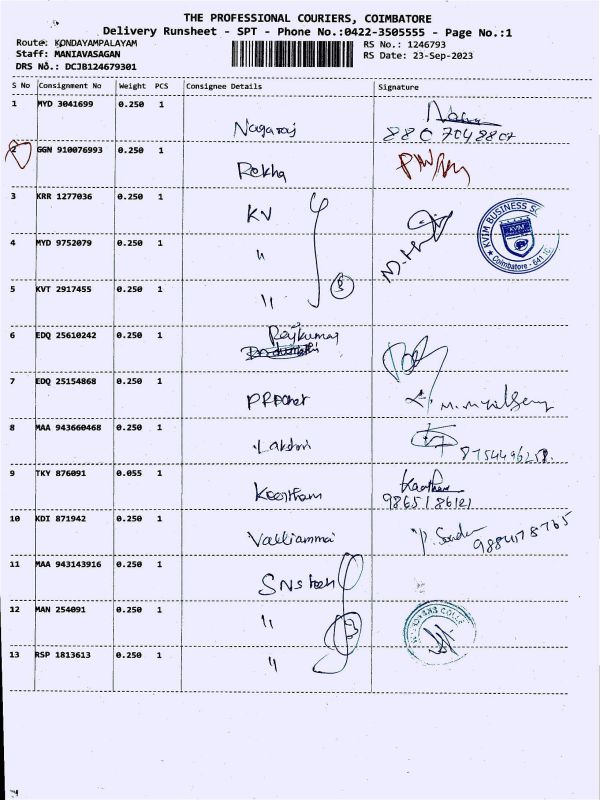 THE PROFESSIONAL COURIERS, COIMBATORE
Delivery Runsheet - SPT - Phone No.:0422-3505555 - Page No.:1
Route: KONDAYAMPALAYAM
RS No.: 1246793
Staff: MANIAVASAGAN
RS Date: 23-Sep-2023
DRS No.: DCJB124679301
S No Consignment No Weight PCS Consignee Details Signature
1 MYD 3041699 0.250 1 Nagaraj
8807048807
2 GGN 910076993 0.250 1 Rekha
3 KRR 1277036 0.250 1 KV
KVIM BUSINESS
KVIM
Coimbatore - 641
4 MYD 9752079 0.250 1 "
5 KVT 2917455 0.250 1 " 3
6 EDQ 25610242 0.250 1 Rajkumar
7 EDQ 25154868 0.250 1
8 MAA 943660468 0.250 1 Lakshmi
9 TKY 876091 0.055 1 Keertham Keertham
10 KDI 871942 0.250 1 Valliammai
11 MAA 943143916 0.250 1 SNS tech
12 MAN 254091 0.250 1 " 3
13 RSP 1813613 0.250 1 "